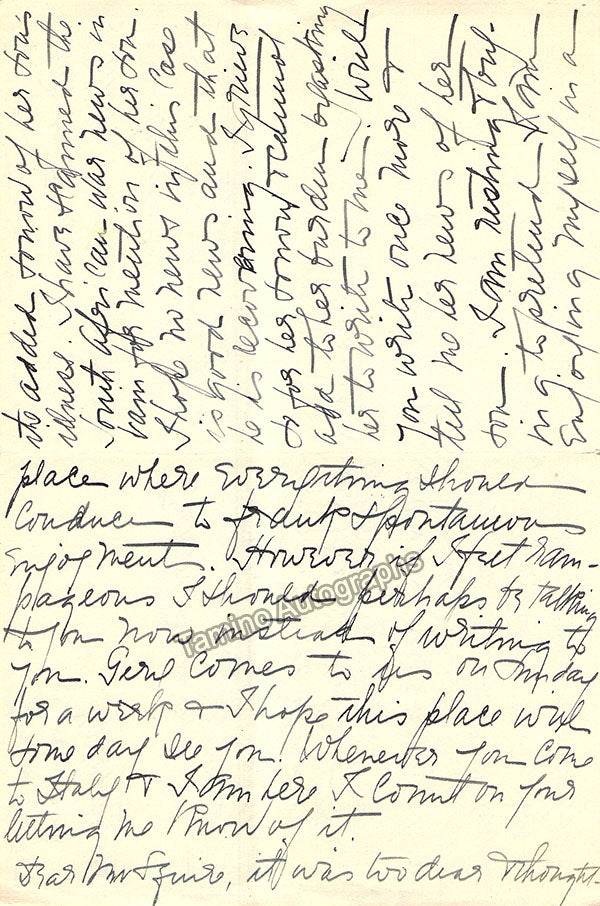 its added sorrow of her son's
illness. I have scanned the
South African war news in
vain for mention of her son.
I hope no news in this case
is good news and that
he is recovering. I grieve
so for her sorrow & cannot
add to her burden by asking
her to write to me. Will
you write once more &
tell me her news of her
son. I am resting & try-
ing to pretend I am
Enjoying myself in a
place where Everything should
conduce to frank & spontaneous
enjoyment. However if I felt ram-
pageous I should perhaps be talking
to you now instead of writing to
you. Gene comes to us on Sunday
for a week & I hope this place will
some day see you. Whenever you come
to Italy & I am here I count on your
letting me know of it.
Dear Mr Squire, it was too dear & thought-
Tamino Autographs